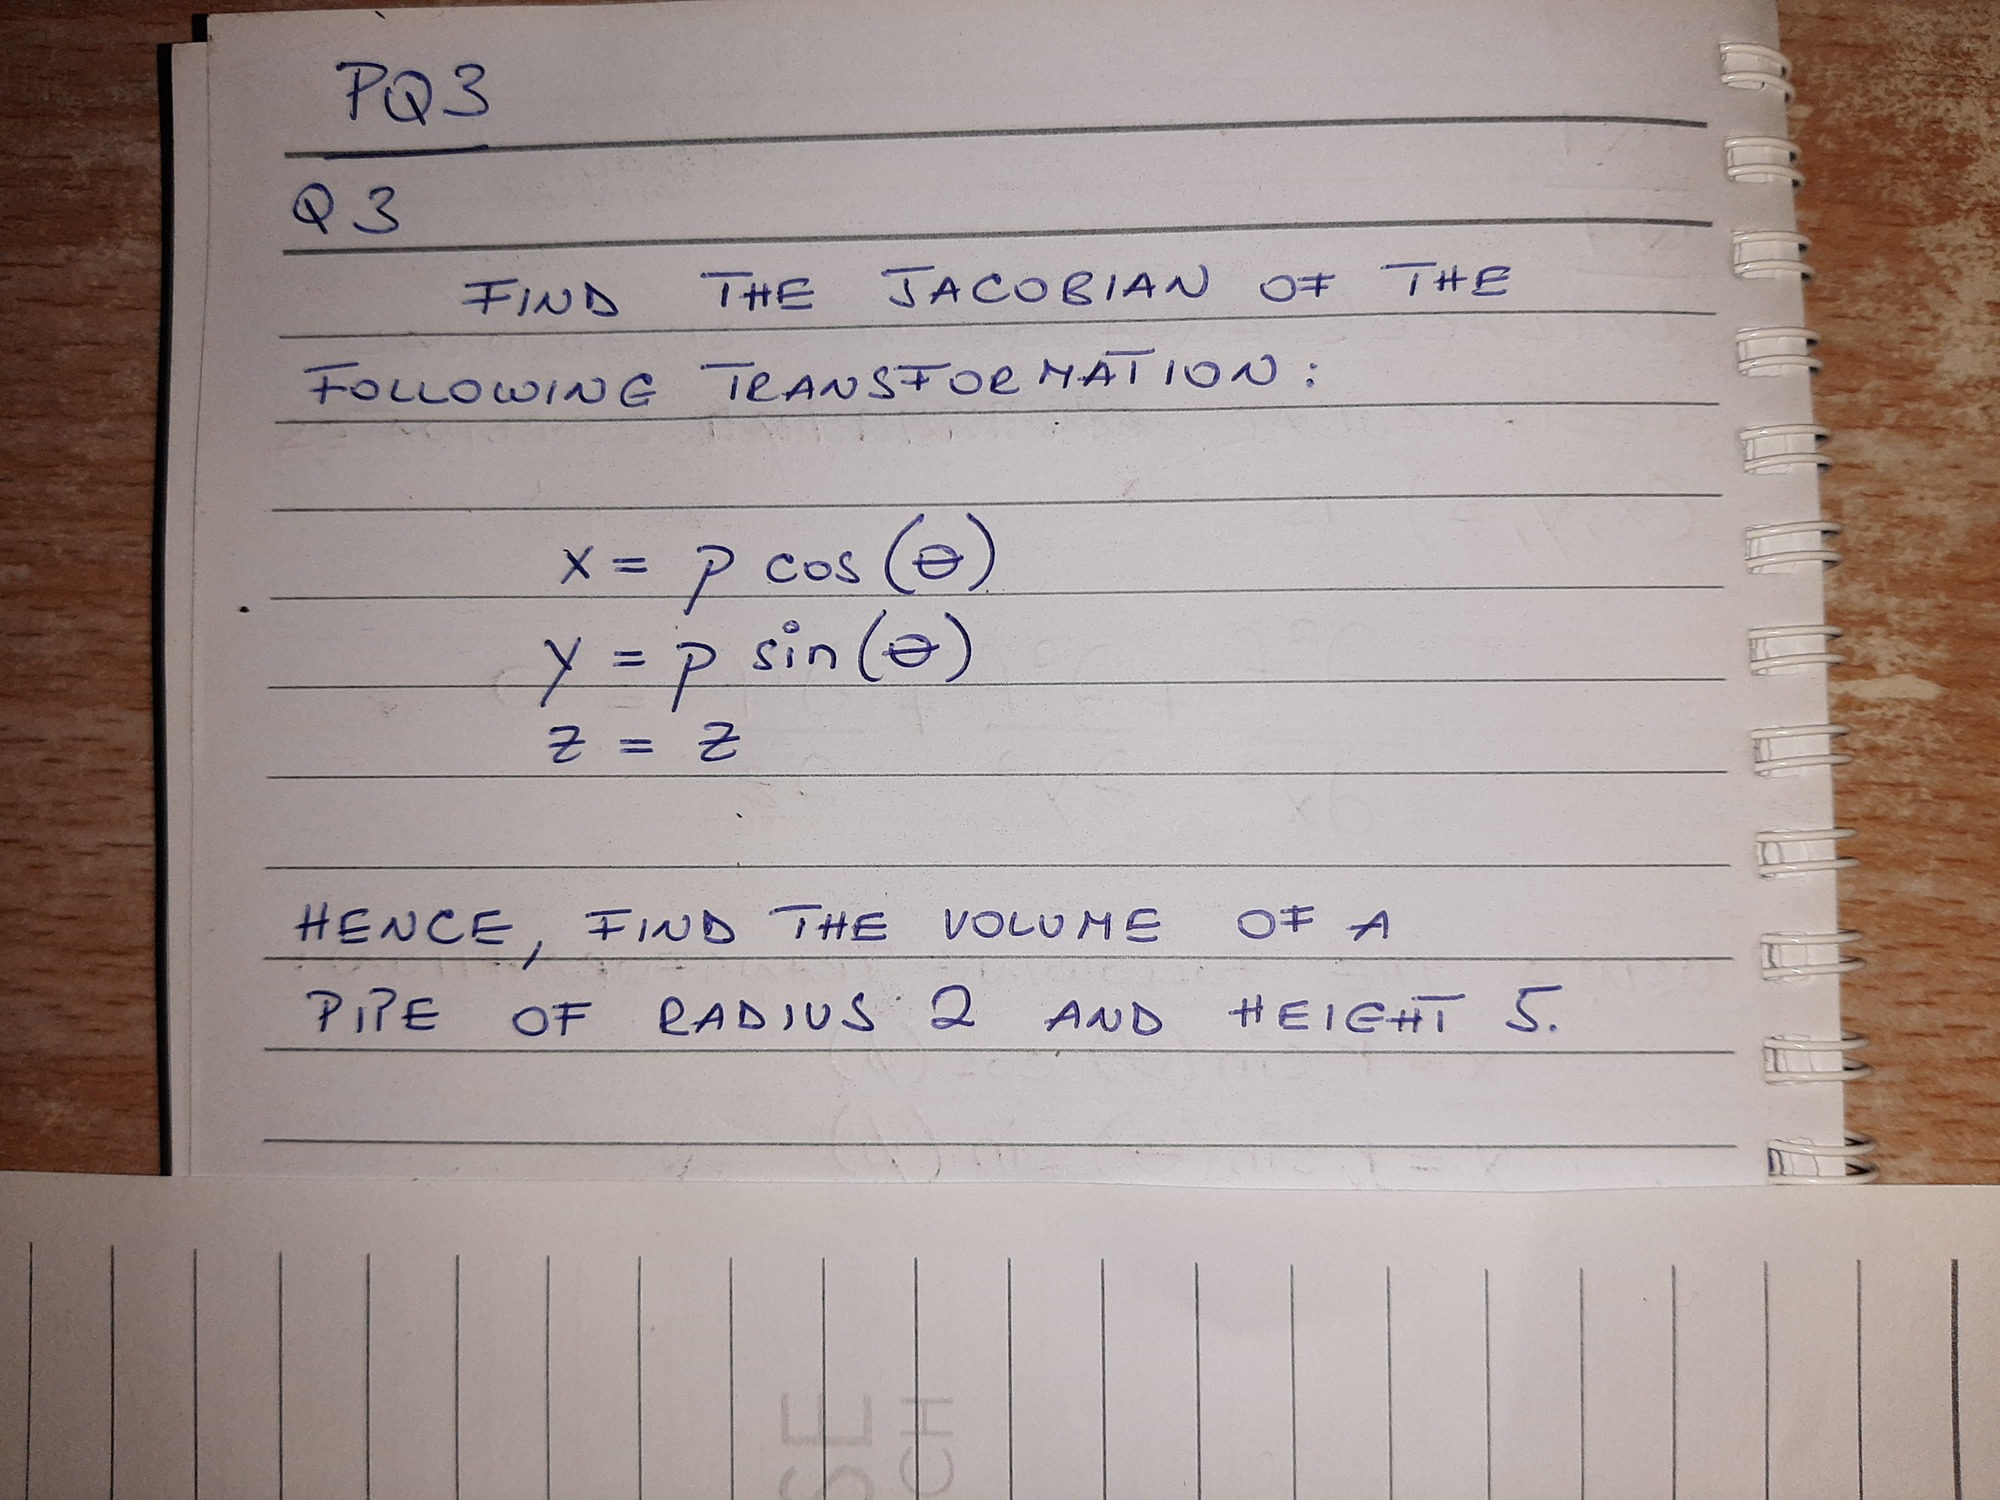 PQ3
Q3
FIND THE JACOBIAN OF THE
FOLLOWING TRANSFORMATION:
x = p cos(θ)
y = p sin(θ)
z = z
HENCE, FIND THE VOLUME OF A
PIPE OF RADIUS 2 AND HEIGHT 5.
SE
CH